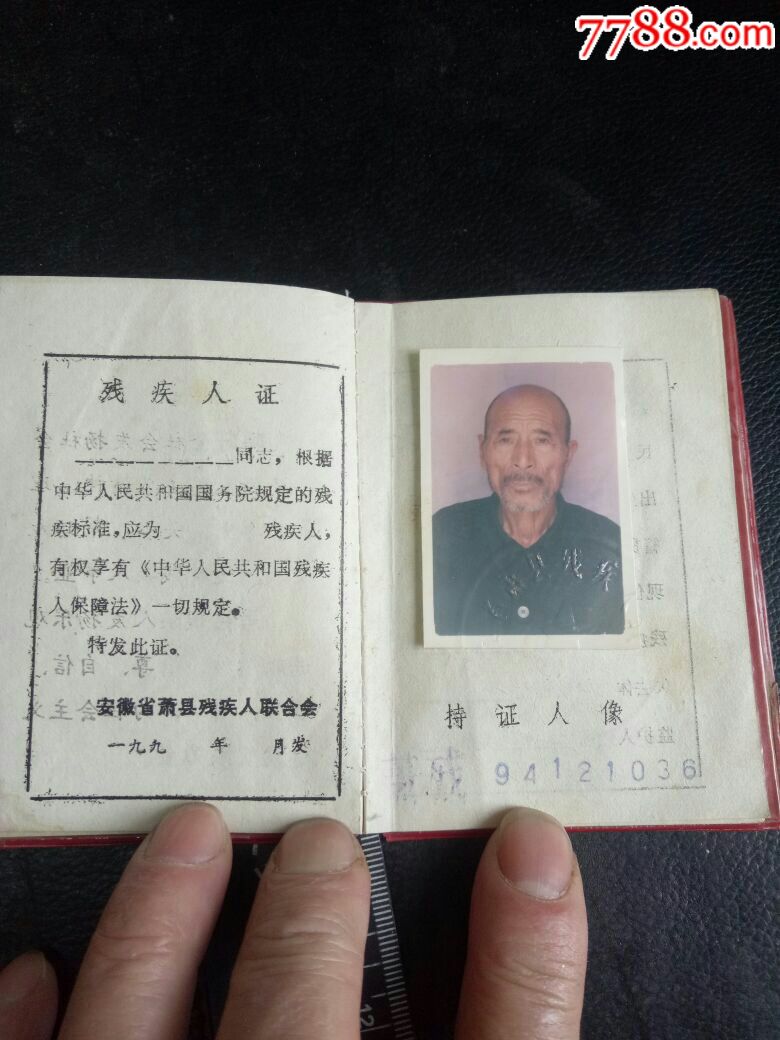 7788.com
残疾人证
同志，根据
中华人民共和国国务院规定的残
疾标准，应为 残疾人，
有权享有《中华人民共和国残疾
人保障法》一切规定。
特发此证。
安徽省萧县残疾人联合会
一九九 年 月发
持证人像
94121036
12